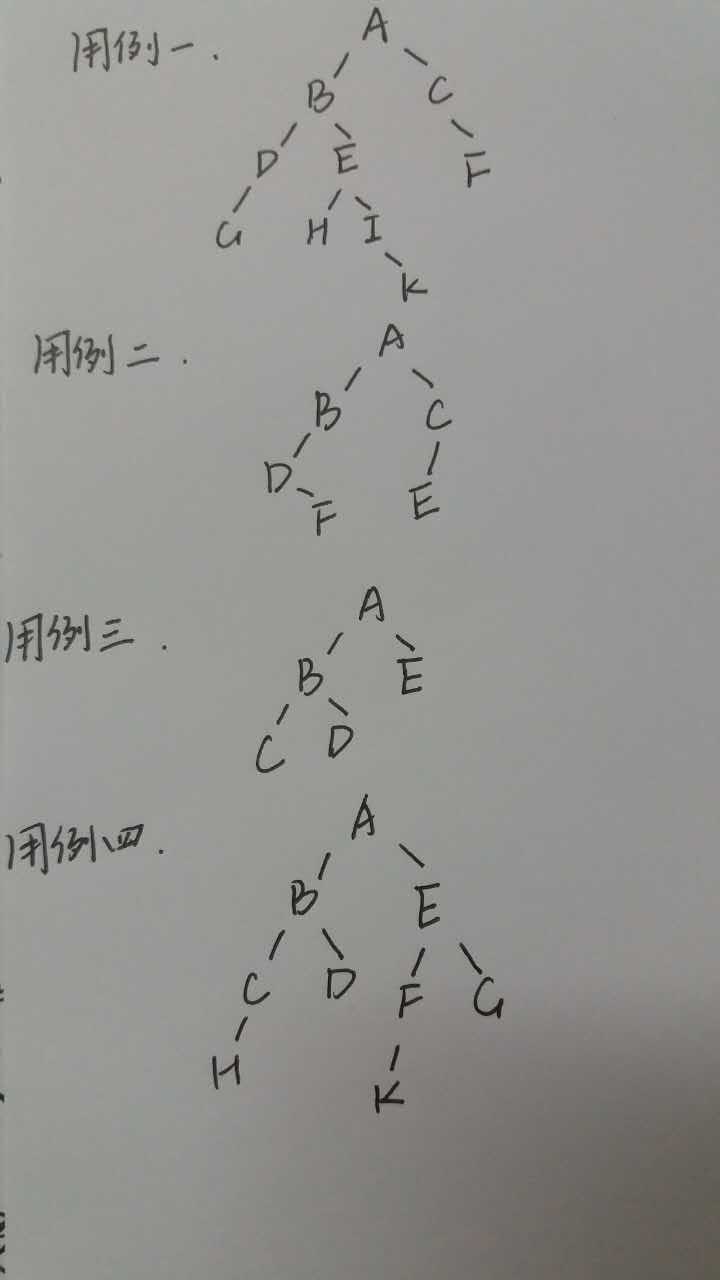 用例一. A
B C
D E F
G H I
K
用例二. A
B C
D E
F
用例三. A
B E
C D
用例四. A
B E
C D F G
H K